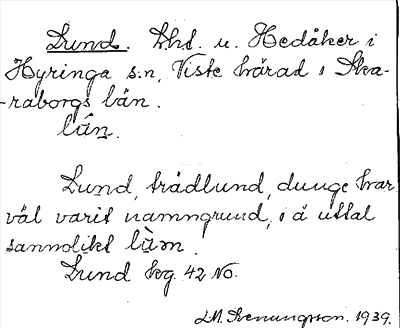 Lund. Lht. u. Hedåker i
Hyringa s:n, Viste härad i Ska-
-raborgs län.
lúǹ.
Lund, trädlund, dunge har
väl varit namngrund, i ä uttal
sannolikt lùm.
Lund hg. 42 No.
1939.